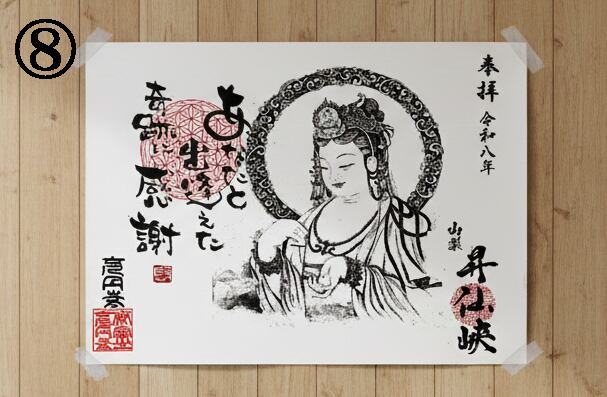 ⑧
奉拝 令和八年
あなたと
出逢えた
奇跡に
感謝
山梨
昇仙峡